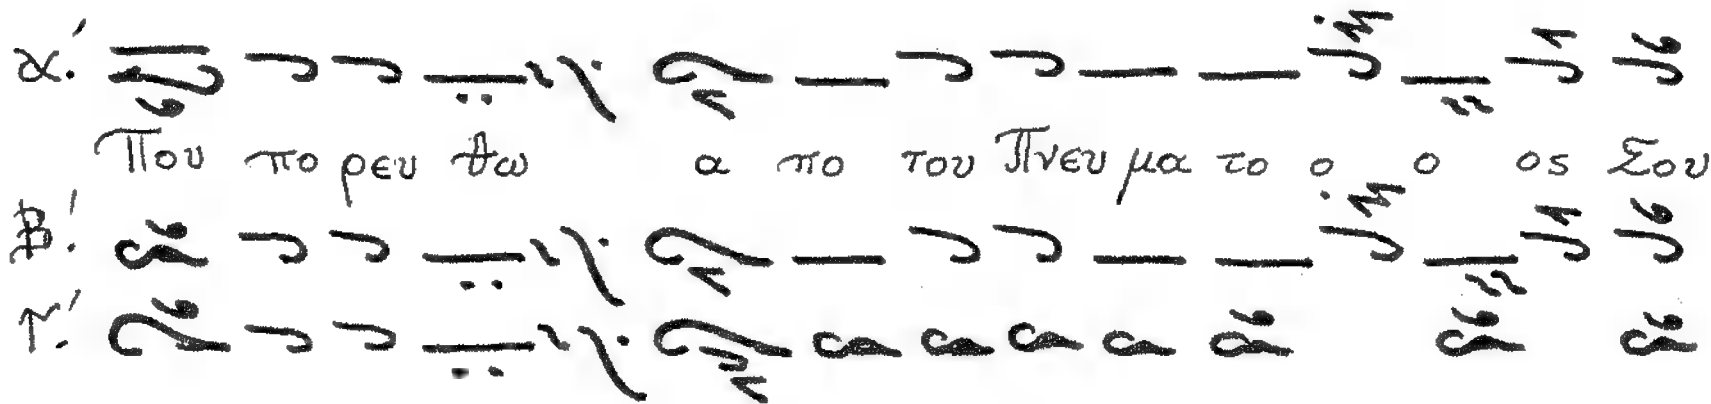 α΄.
Που πο ρευ θω α πο του Πνευ μα το ο ο ος Σου
Β΄.
Γ΄.